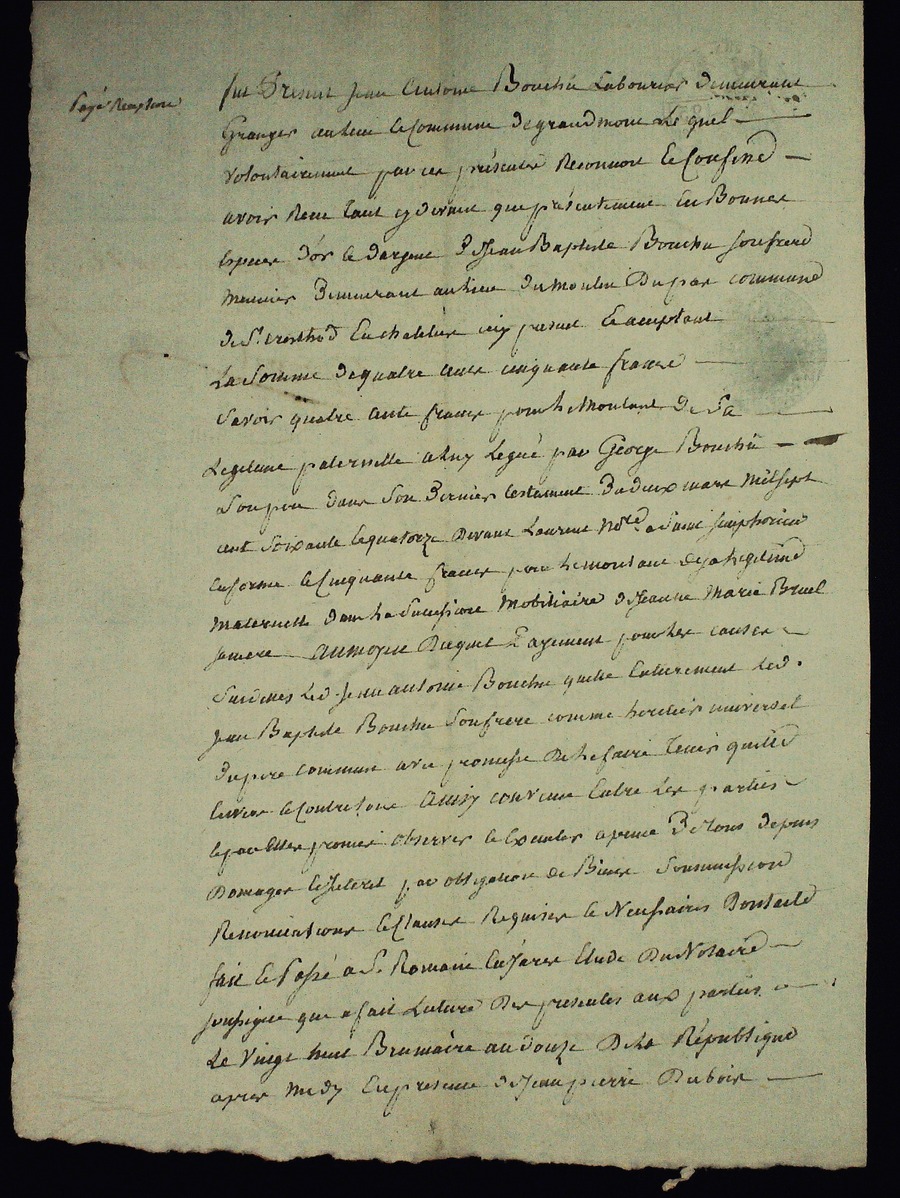 payé Reception
fut Present jean Antoine Bouchu Laboureur demeurant
Granger au lieu et Commune de grandmont Lequel
volontairement par ces présentes Reconnoit et Confesse
avoir Recu tant cy devant que présentement En Bonnes
especes d'or et d'argent de jean Baptiste Bouchu son frere
meunier Demeurant au lieu du moulin commune
de St En chatelus icy present Et acceptant
La Somme de quatre cents cinquante francs
Savoir quatre cents francs pour le Montant de Sa
Legitime paternelle a luy Legué par George Bouchu
Son pere dans Son Dernier testament Du deux mars Mil sept
cent Soixante et quatorze Devant Laurent No.re a Saint simphorien
en forme et Cinquante francs pour le montant de sa legitime
Maternelle dans la Succession Mobiliaire de jeanne Marie Bruel
sa mere au moyen Duquel Payement pour les causes
Susdites Led. jean antoine Bouchu quitte Entierement led.
jean Baptiste Bouchu Son frere comme heritier universel
du pere commun avec promesse De le faire tenir quitte
Envers et Contre tous Ainsy convenu Entre Les parties
et par Elles promis observer et Executer a peine De tous depens
Domages et interet par obligation de Biens Soummission
Renonciations et Clauses Requises et Necessaires Dont acte
fait Et Passé a St. Romain En Jarez Etude Du Notaire
soussigné qui a fait Lecture Des presentes aux parties
Le Vingt huit Brumaire an douze De la République
apres midy En presence de jean pierre Dubois